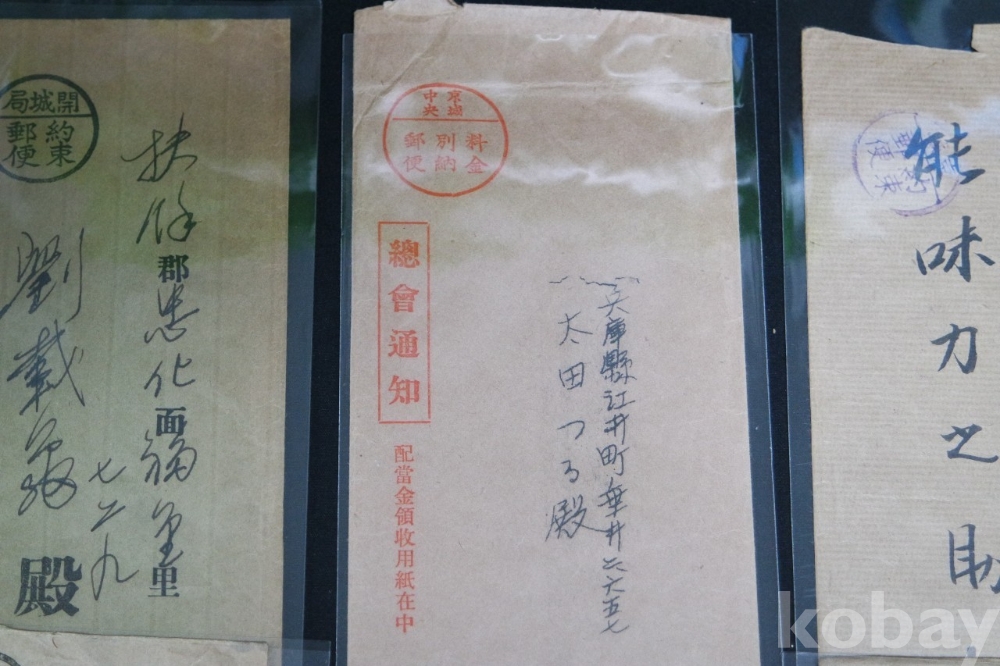 開城局
約束
郵便
扶餘郡忠化面福金里
七二九
劉載龜殿
京城
中央
料金
別納
郵便
總會通知
配當金領收用紙在中
兵庫縣江井町
太田つる殿
約束
郵便
能味力之助
kobay